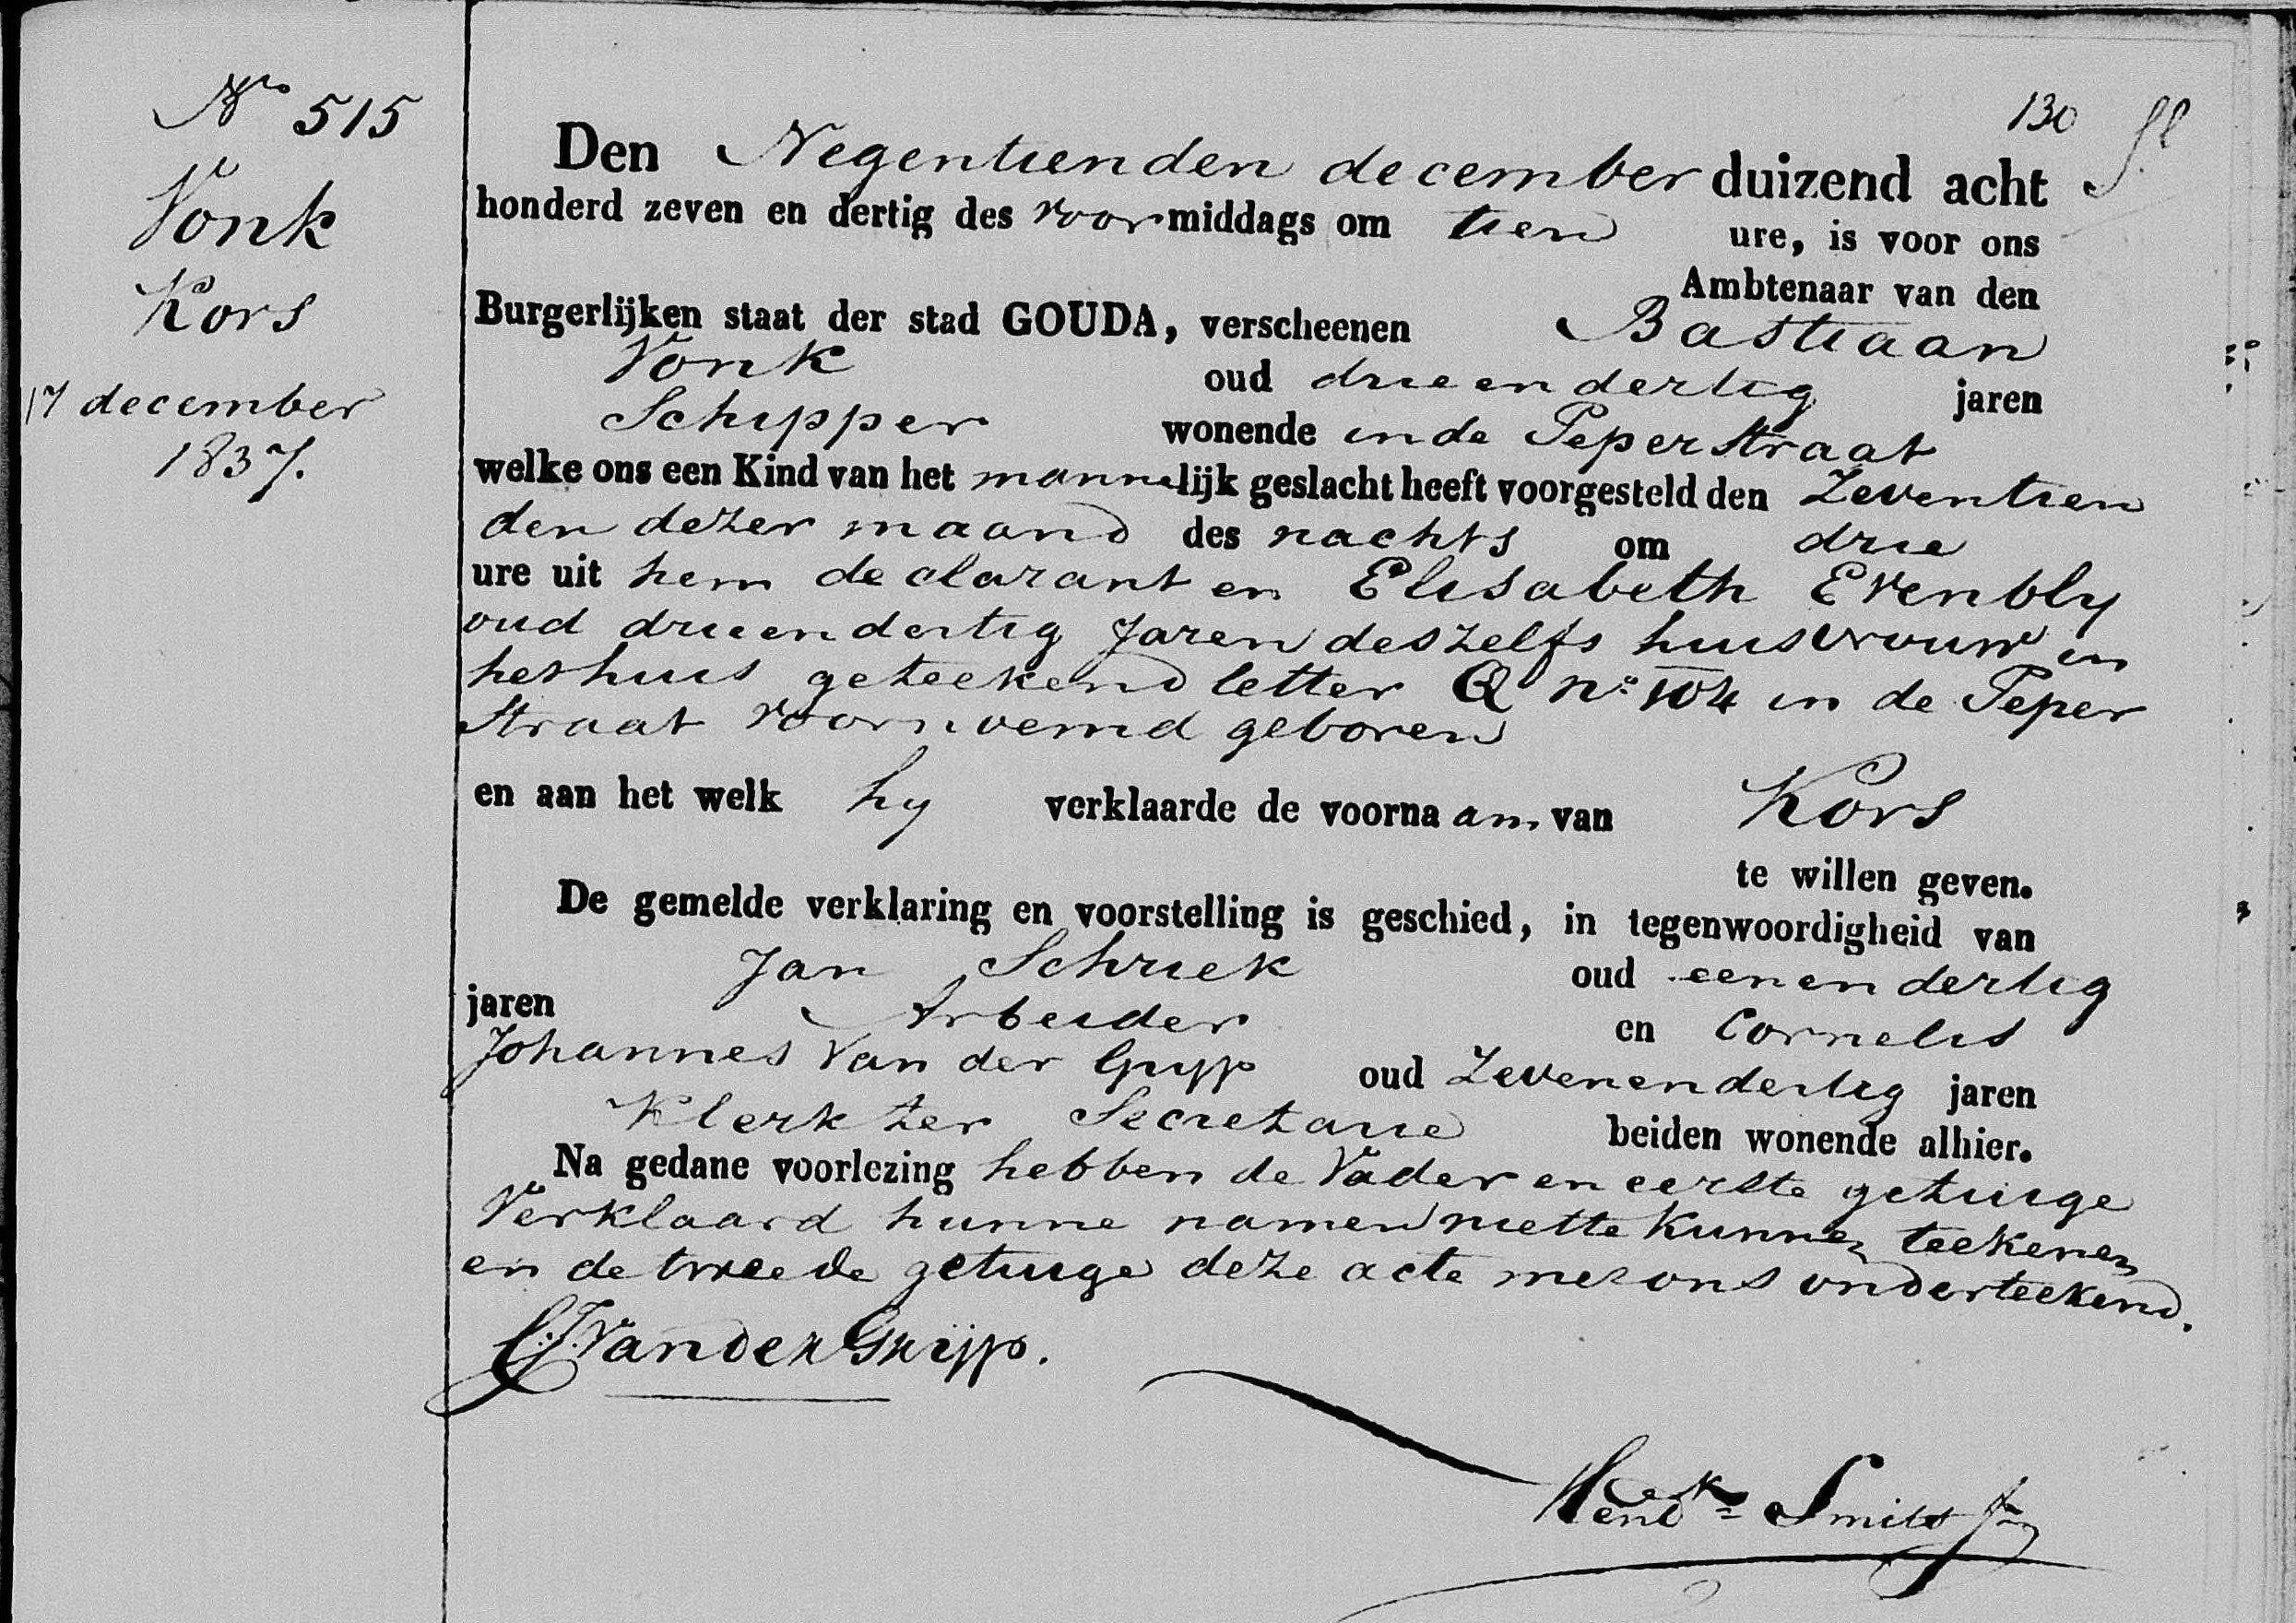 No 515
Vonk
Kors
17 december
1837.
130
Den Negentienden december duizend acht
honderd zeven en dertig des voormiddags om tien ure, is voor ons
Ambtenaar van den
Burgerlijken staat der stad GOUDA, verscheenen Bastiaan
Vonk oud drieendertig jaren
Schipper wonende in de Peperstraat
welke ons een Kind van het mannelijk geslacht heeft voorgesteld den Zeventien
den dezer maand des nachts om drie
ure uit hem declarant en Elisabeth Evenbly
oud drieendertig Jaren deszelfs huisvrouw in
het huis geteekend letter Q No 104 in de Peper
straat voornoemd geboren
en aan het welk hy verklaarde de voornaam van Kors
te willen geven.
De gemelde verklaring en voorstelling is geschied, in tegenwoordigheid van
Jan Schriek oud eenendertig
jaren Arbeider en Cornelis
Johannes Van der Gryp oud Zevenendertig jaren
Klerk ter Secretarie beiden wonende alhier.
Na gedane voorlezing hebben de Vader en eerste getuige
Verklaard hunne namen niet te kunnen teekenen
en de tweede getuige deze acte met ons onderteekend.
C:J: Van der Grijp.
Hendk Smits Jz